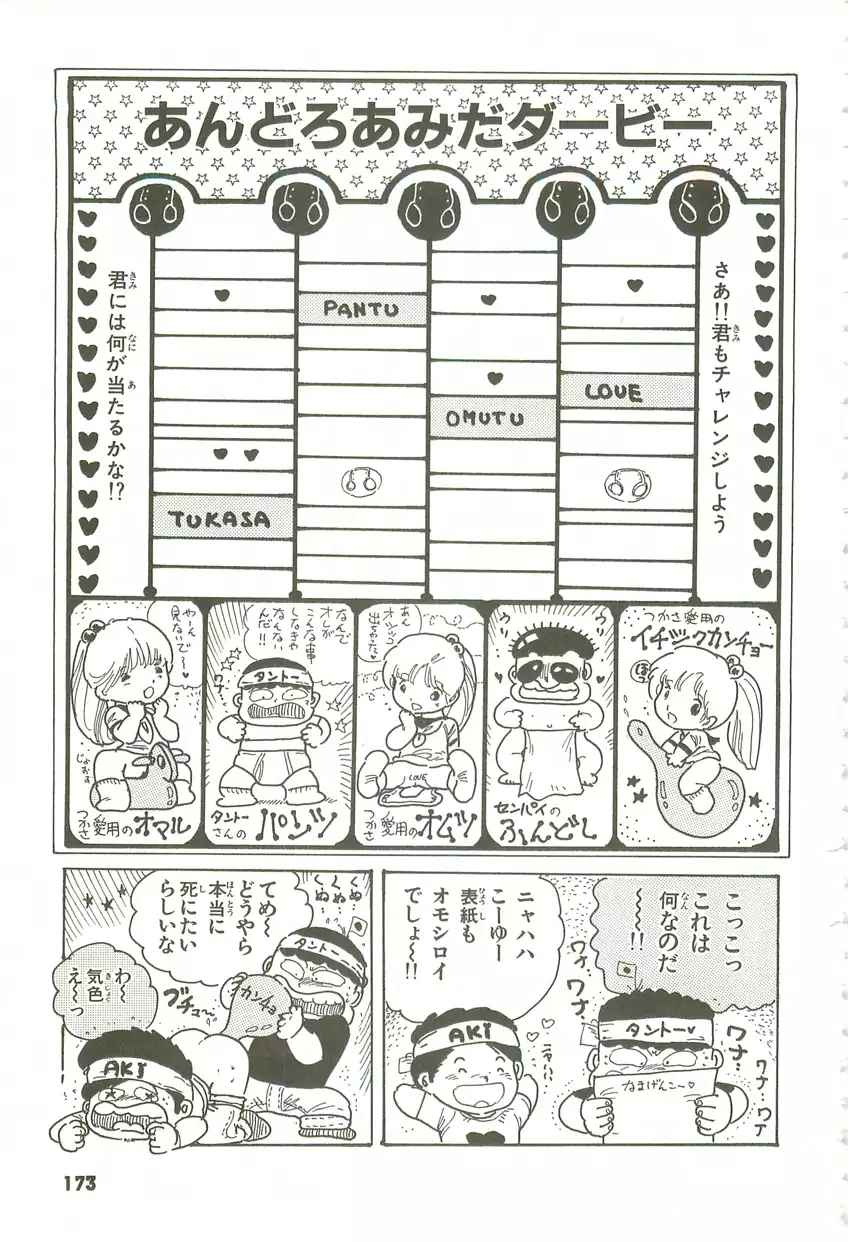 あんどろあみだダービー
さあ!!君もチャレンジしよう
君には何が当たるかな!?
PANTU
LOVE
OMUTU
TUKASA
つかさ愛用の
イチヂクカンチョー
ほっ
センパイの
ふんどし
あん
オシッコ
出ちゃった
LOVE
つかさ愛用のオムツ
なんで
オレが
こんな事
しなきゃ
なんない
んだ!!
タントー
ワナ
タントーさんの
パンツ
やーん
見ないで〜
つかさ愛用のオマル
こっこっ
これは
何なのだ
〜!!
ワナ、ワナ、
タントー
ワナ‥
ワナ‥ワナ
なまげんこ〜
ニャハハ
こーゆー
表紙も
オモシロイ
でしょ〜!!
AKi
くぬ‥
くぬ‥
くぬ‥
てめ〜
どうやら
本当に
死にたい
らしいな
タントー
カンチョ
ブチュ〜
わ〜
気色
え〜っ
AKi
173